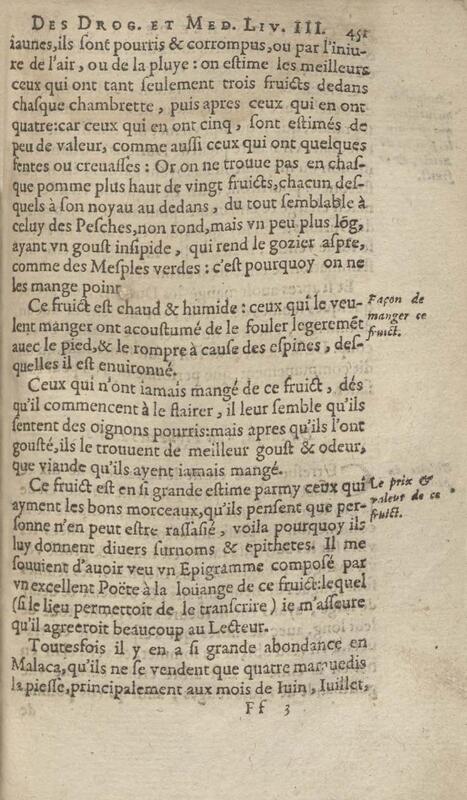 DES DROG. ET MED. LIV. III. 451
iaunes, ils sont pourris & corrompus, ou par l'iniu-
re de l'air, ou de la pluye : on estime les meilleurs
ceux qui ont tant seulement trois fruicts dedans
chasque chambrette, puis apres ceux qui en ont
quatre: car ceux qui en ont cinq, sont estimés de
peu de valeur, comme aussi ceux qui ont quelques
fentes ou creuasses : Or on ne trouue pas en chas-
que pomme plus haut de vingt fruicts, chacun des-
quels à son noyau au dedans, du tout semblable à
celuy des Pesches, non rond, mais vn peu plus lõg,
ayant vn goust insipide, qui rend le gozier aspre,
comme des Mesples verdes : c'est pourquoy on ne
les mange point
Ce fruict est chaud & humide : ceux qui le veu-
lent manger ont acoustumé de le fouler legeremẽt
auec le pied, & le rompre à cause des espines, des-
quelles il est enuironné.
Façon de
manger ce
fruict.
Ceux qui n'ont iamais mangé de ce fruict, dés
qu'il commencent à le flairer, il leur semble qu'ils
sentent des oignons pourris: mais apres qu'ils l'ont
gousté, ils le trouuent de meilleur goust & odeur,
que viande qu'ils ayent iamais mangé.
Ce fruict est en si grande estime parmy ceux qui
ayment les bons morceaux, qu'ils pensent que per-
sonne n'en peut estre rassasié, voila pourquoy ils
luy donnent diuers surnoms & epithetes. Il me
souuient d'auoir veu vn Epigramme composé par
vn excellent Poëte à la louange de ce fruict: lequel
(si le lieu permettoit de le transcrire) ie m'asseure
qu'il agreeroit beaucoup au Lecteur.
Le prix &
valeur de ce
fruict.
Toutesfois il y en a si grande abondance en
Malaca, qu'ils ne se vendent que quatre maruedis
la piesse, principalement aux mois de Iuin, Iuillet,
Ff 3